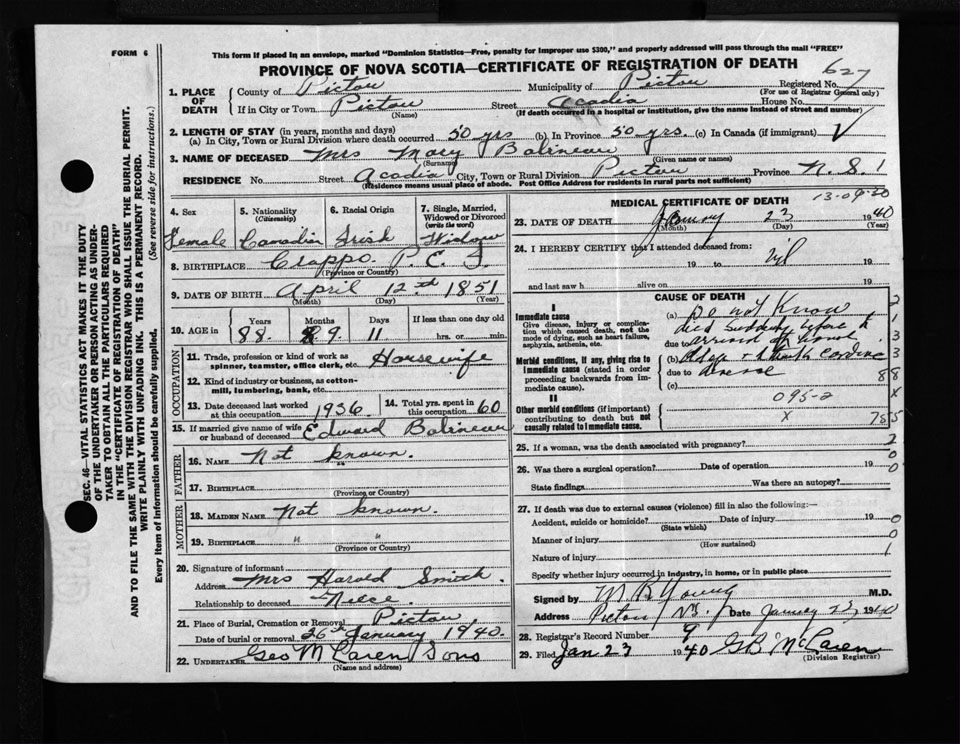 FORM 6
This form if placed in an envelope, marked "Dominion Statistics—Free, penalty for improper use $300," and properly addressed will pass through the mail "FREE"
PROVINCE OF NOVA SCOTIA—CERTIFICATE OF REGISTRATION OF DEATH
SEC. 46—VITAL STATISTICS ACT MAKES IT THE DUTY
OF THE UNDERTAKER OR PERSON ACTING AS UNDER-
TAKER TO OBTAIN ALL THE PARTICULARS REQUIRED
IN THE "CERTIFICATE OF REGISTRATION OF DEATH"
AND TO FILE THE SAME WITH THE DIVISION REGISTRAR WHO SHALL ISSUE THE BURIAL PERMIT.
WRITE PLAINLY WITH UNFADING INK. THIS IS A PERMANENT RECORD.
Every item of information should be carefully supplied. (See reverse side for instructions.)
1. PLACE OF DEATH
County of Pictou Municipality of Pictou Registered No. 627
(For use of Registrar General only)
If in City or Town Pictou Street Acadia House No.
(Name) (If death occurred in a hospital or institution, give the name instead of street and number)
2. LENGTH OF STAY (in years, months and days)
(a) In City, Town or Rural Division where death occurred 50 yrs (b) In Province 50 yrs (c) In Canada (if immigrant)
3. NAME OF DECEASED Mrs Mary Babineau
(Surname) (Given name or names)
RESIDENCE No. Street Acadia City, Town or Rural Division Pictou Province N.S. 1
(Residence means usual place of abode. Post Office Address for residents in rural parts not sufficient)
4. Sex
Female
5. Nationality
(Citizenship)
Canadian
6. Racial Origin
Irish
7. Single, Married,
Widowed or Divorced
(write the word)
Widow
8. BIRTHPLACE Crappo. P.E.I.
(Province or Country)
9. DATE OF BIRTH April 12th 1851
(Month) (Day) (Year)
10. AGE in
Years Months Days If less than one day old
88 9 11 hrs. or min.
OCCUPATION
11. Trade, profession or kind of work as
spinner, teamster, office clerk, etc. Housewife
12. Kind of industry or business, as cotton-
mill, lumbering, bank, etc.
13. Date deceased last worked
at this occupation 1936
14. Total yrs. spent in
this occupation 60
15. If married give name of wife
or husband of deceased Edward Babineau
FATHER
16. Name Not known.
17. Birthplace
(Province or Country)
MOTHER
18. Maiden Name Not known.
19. Birthplace " "
(Province or Country)
20. Signature of informant Mrs Harold Smith.
Address
Relationship to deceased Neice
21. Place of Burial, Cremation or Removal Pictou
Date of burial or removal 26th January 1940.
22. Undertaker Geo McLaren Sons
(Name and address)
MEDICAL CERTIFICATE OF DEATH
13-09-30
23. DATE OF DEATH January 23 1940
(Month) (Day) (Year)
24. I HEREBY CERTIFY that I attended deceased from:
19 to 19
and last saw h alive on 19
CAUSE OF DEATH
I
Immediate cause
Give disease, injury or complica-
tion which caused death, not the
mode of dying, such as heart failure,
asphyxia, asthenia, etc.
Morbid conditions, if any, giving rise to
immediate cause (stated in order
proceeding backwards from im-
mediate cause).
II
Other morbid conditions (if important)
contributing to death but not
causally related to immediate cause.
(a) Do not Know
died suddenly before
due to
(b)
due to
(c)
095-2
X
25. If a woman, was the death associated with pregnancy?
26. Was there a surgical operation? Date of operation 19
State findings Was there an autopsy?
27. If death was due to external causes (violence) fill in also the following:—
Accident, suicide or homicide? Date of injury 19
(State which)
Manner of injury
(How sustained)
Nature of injury
Specify whether injury occurred in industry, in home, or in public place
Signed by M B Young M.D.
Address Pictou NS. Date January 23, 1940
28. Registrar's Record Number 9
29. Filed Jan 23 1940 GB McLaren
(Division Registrar)